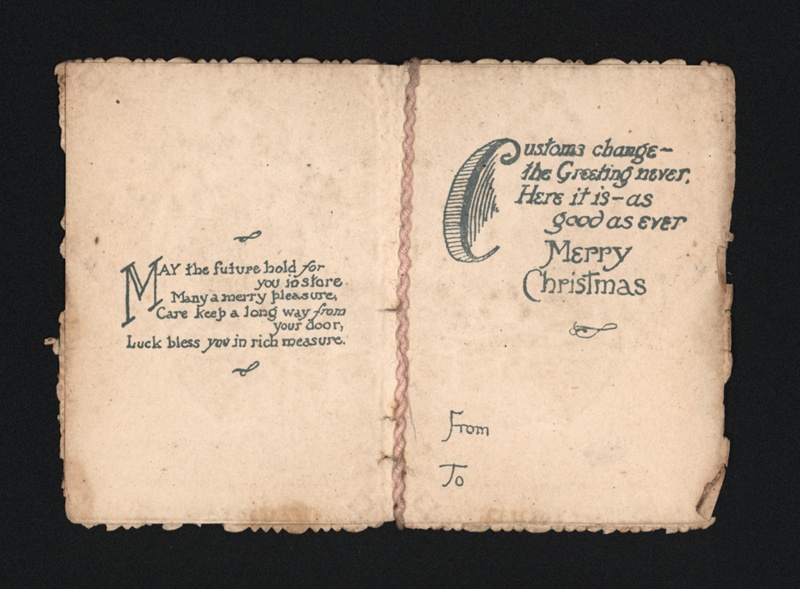 MAY the future hold for
you in store
Many a merry pleasure,
Care keep a long way from
your door,
Luck bless you in rich measure.
Customs change—
the Greeting never.
Here it is—as
good as ever
Merry
Christmas
From
To